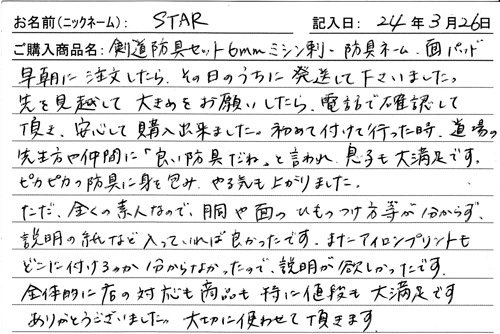 お名前(ニックネーム): STAR 記入日: 24年3月26日
ご購入商品名: 剣道防具セット6mmミシン刺・防具ネーム・面パッド
早朝に注文したら、その日のうちに発送して下さいました。
先を見越して大きめをお願いしたら、電話で確認して
頂き、安心して購入出来ました。初めて付けて行った時、道場の
先生方や仲間に「良い防具だね」と言われ、息子も大満足です。
ピカピカの防具に身を包み、やる気も上がりました。
ただ、全くの素人なので、胴や面のひものつけ方等が分からず、
説明の紙など入っていれば良かったです。またアイロンプリントも
どこに付けるのか分からなかったので、説明が欲しかったです。
全体的に店の対応も商品も特に値段も大満足です
ありがとうございました。大切に使わせて頂きます